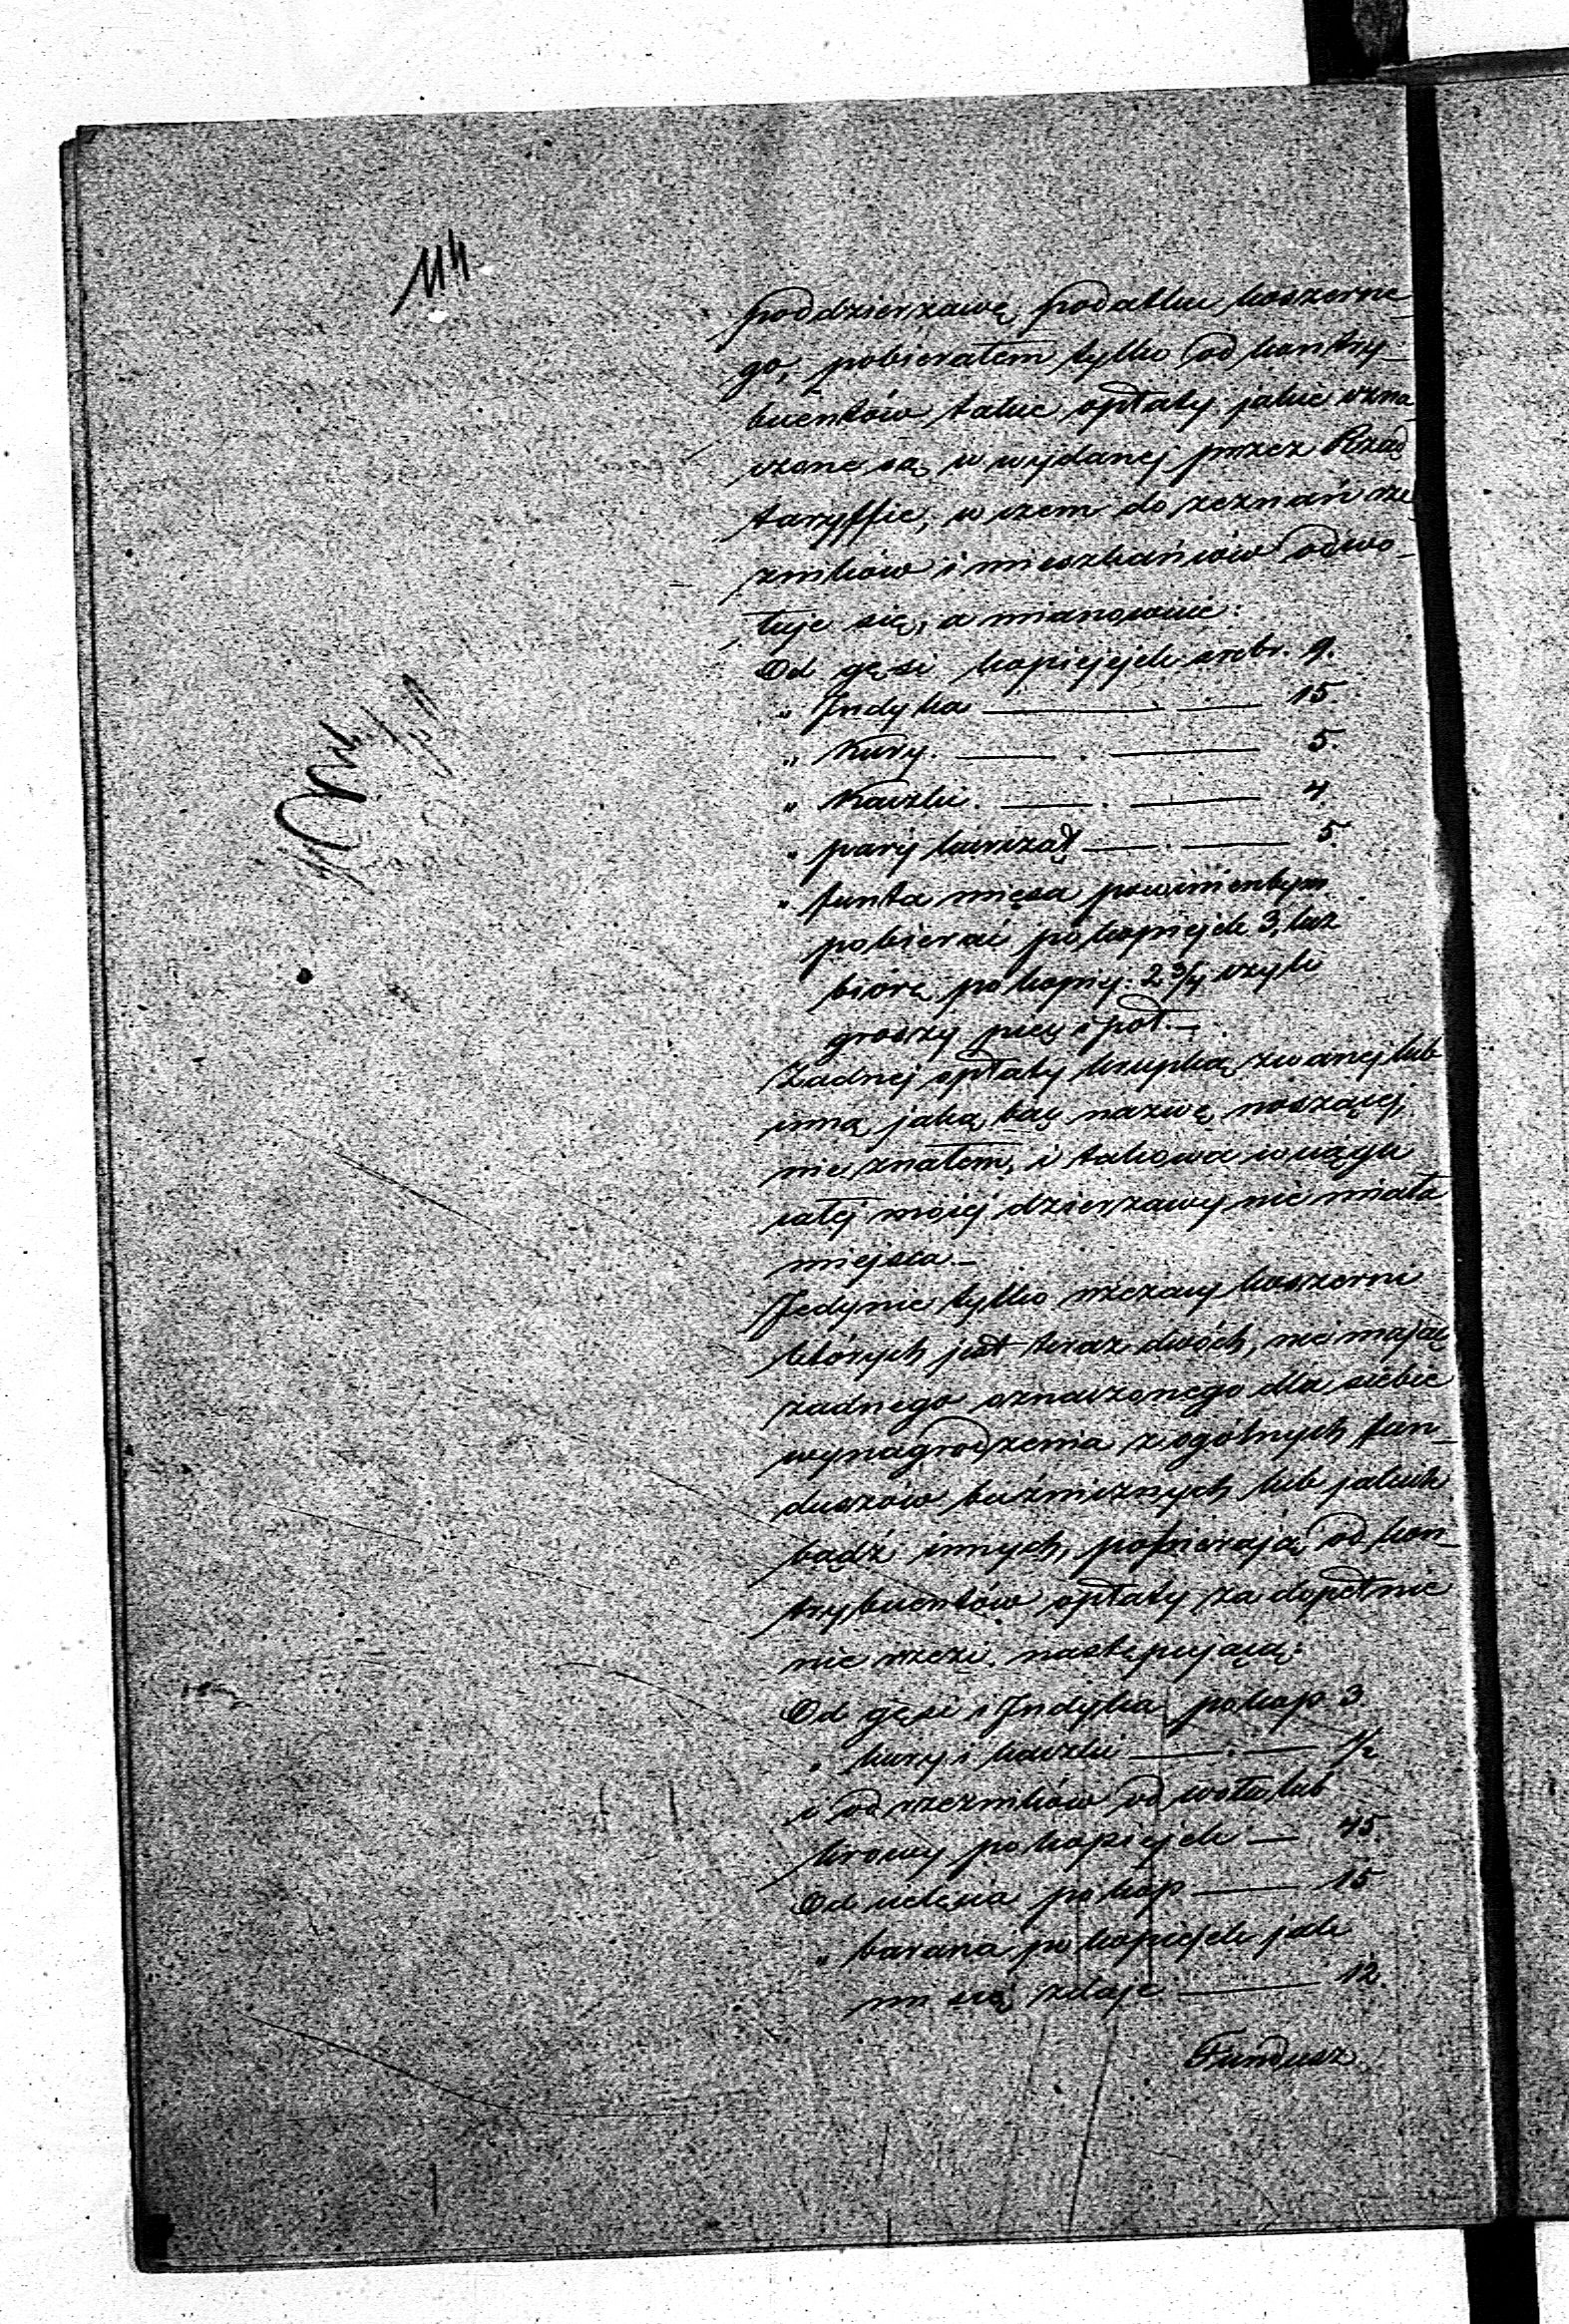 114
poddzierzawę podatku koszerne
go, pobierałem tylko od kontry_
buentów takie opłaty jakie ozna
czone są w wydanej przez Rząd
taryffie, w czem do zeznań rze
zników i mieszkańców odwo_
łuje się, a mianowicie:
Od gęsi kopiejek srebr. 9.
" Indyka — — 15.
" Kury. — . — 5.
" Kaczki. — . — 4
" pary kurcząt — . — 5
" funta mięsa powinienbym
pobierać po kopiejek 3, lecz
biorę po kopiej: 2 3/4 czyli
groszy pięć i pół. —
Żadnej opłaty krupką zwanej lub
inną jaką bąć nazwę noszącej,
nie znałem, i takowa w ciągu
całej mojej dzierżawy nie miała
miejsca. —
Jedynie tylko rzezacy koszerni
których jest teraz dwóch, nie mając
żadnego oznaczonego dla siebie
wynagrodzenia z ogólnych fun_
duszów bużnicznych lub jakich
bądź innych, pobierają od kon_
trybuentów opłaty za dopełnie
nie rzezi następującą:
Od gęsi i Indyka po kop 3
" kury i kaczki — . — 1/2
i od rzezników od wołu lub
krowy po kopiejek — 45.
Od cielęcia po kop — 15
" barana po kopiejek jak
mi się zdaje — 12.
Fundusz